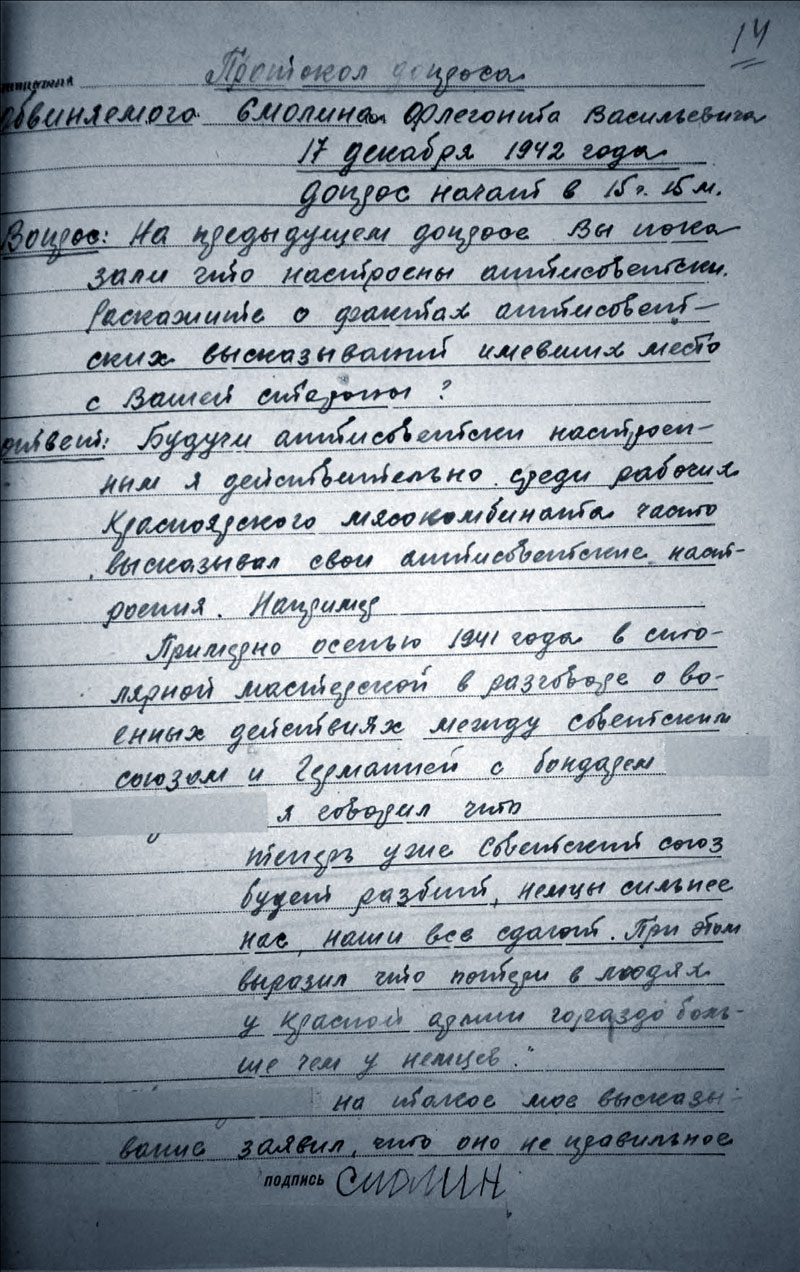 14
Протокол допроса
обвиняемого Смолина Флегонта Васильевича
17 декабря 1942 года
допрос начат в 15 ч. 15 м.
Вопрос: На предыдущем допросе Вы пока
зали что настроены антисоветски.
Раскажите о фактах антисовет-
ских высказываний имевших место
с Вашей стороны?
Ответ: Будучи антисоветски настроен-
ным я действительно среди рабочих
Красноярского мясокомбината часто
высказывал свои антисоветские наст-
роения. Например
Примерно осенью 1941 года в сто-
лярной мастерской в разговоре о во-
енных действиях между советским
союзом и Германией с бондарем
я говорил что
теперь уже Советский союз
будет разбит, немцы сильнее
нас, наши все сдают. При этом
выразил что потери в людях
у красной армии гораздо боль-
ше чем у немцев."
на такое мое высказы-
вание заявил, что оно не правильное
подпись Смолин